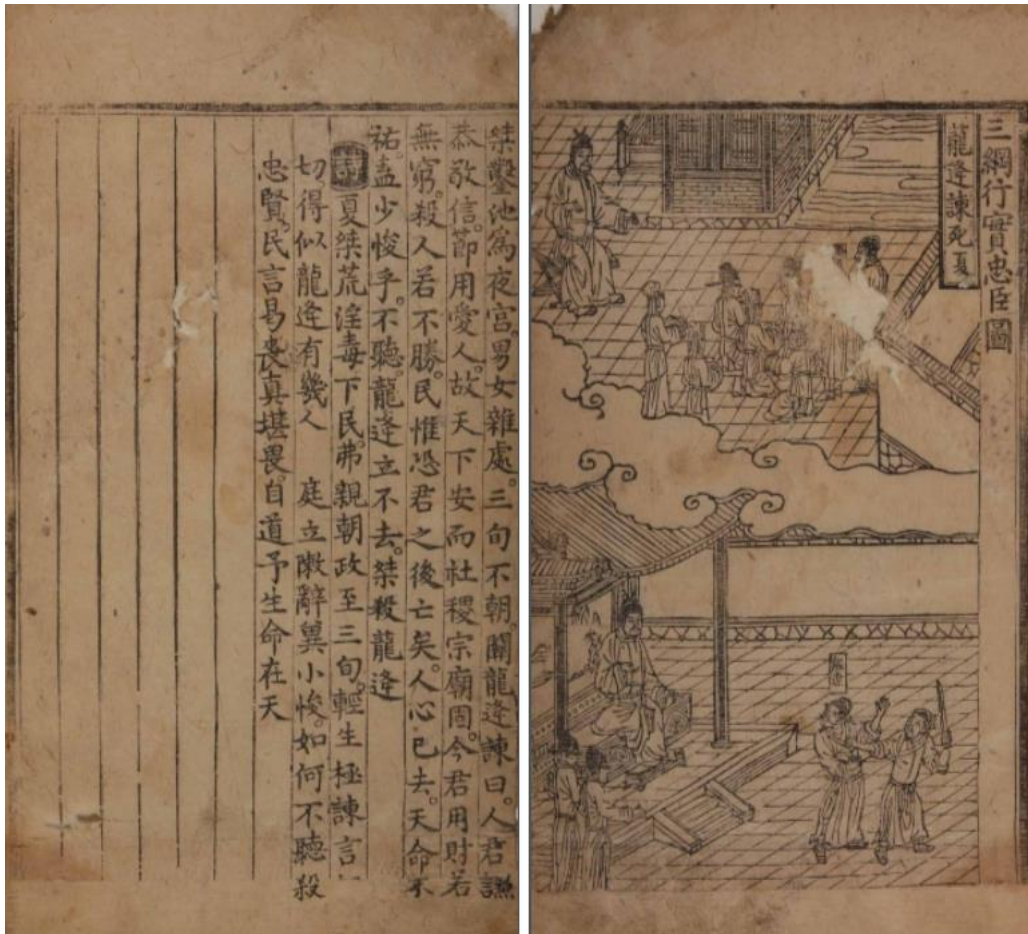 三綱行實忠臣圖
龍逢諫死 夏
龍逢
桀鑿池爲夜宮。男女雜處。三旬不朝。關龍逢諫曰。人君謙
恭敬信。節用愛人。故天下安而社稷宗廟固。今君用財若
無窮。殺人若不勝。民惟恐君之後亡矣。人心已去。天命不
祐。盍少悛乎。不聽。龍逢立不去。桀殺龍逢
詩 夏桀荒淫毒下民。弗親朝政至三旬。輕生極諫言
切得似龍逢有幾人 庭立敶辭冀小悛。如何不聽殺
忠賢。民言曷喪真堪畏。自道予生命在天